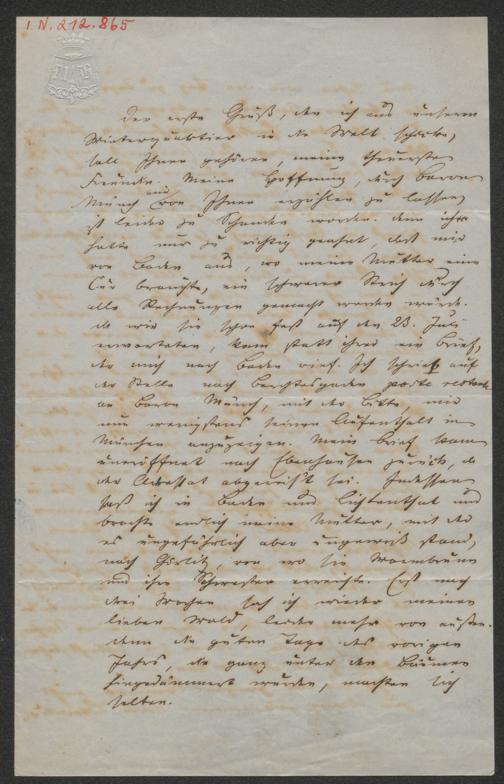 I.N. 212.865
Der erste Gruß, den ich aus unserm
Winterquartier in die Welt schicke,
soll Ihnen gehören, meine theuerste
Freundin. Meine Hoffnung, durch Baron
Münch von Ihnen erzählen zu lassen,
ist leider zu Schanden worden. Denn ich
hatte nur zu richtig geahnt, daß mir
von Baden aus, wo meine Mutter eine
Cur brauchte, ein schwerer Strich durch
alle Rechnungen gemacht werden würde.
Als wir sie schon fast auf den 23. Juli
erwarteten, kam statt ihrer ein Brief,
der mich nach Baden rief. Ich schrieb auf
der Stelle nach Berchtesgaden poste restante
an Baron Münch, mit der Bitte, mir
nun wenigstens seinen Aufenthalt in
München anzuzeigen. Mein Brief kam
uneröffnet nach Ebenhausen zurück, da
der Adressat abgereis't sei. Indessen
saß ich in Baden und Lichtenthal und
brachte endlich meine Mutter, mit der
es ungefährlich aber ungewiß stand,
nach Görlitz, von wo sie Warmbrunn
und ihre Schwester erreichte. Erst nach
drei Wochen sah ich wieder meinen
lieben Wald, leider mehr von außen.
denn die guten Tage des vorigen
Jahrs, die ganz unter den Bäumen
hingedämmert wurden, machten sich
selten.